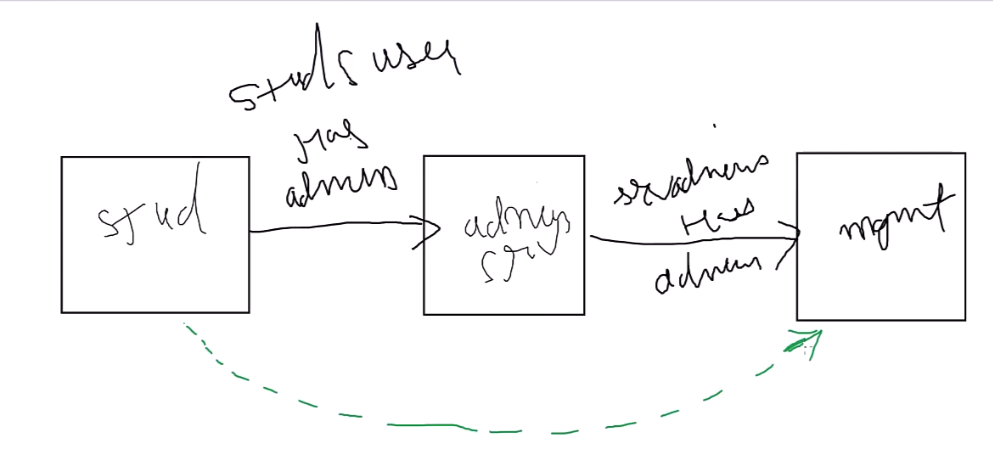 stud
studs user
Has
admin
admin
srv
srvadmin
Has
admin
mgmt